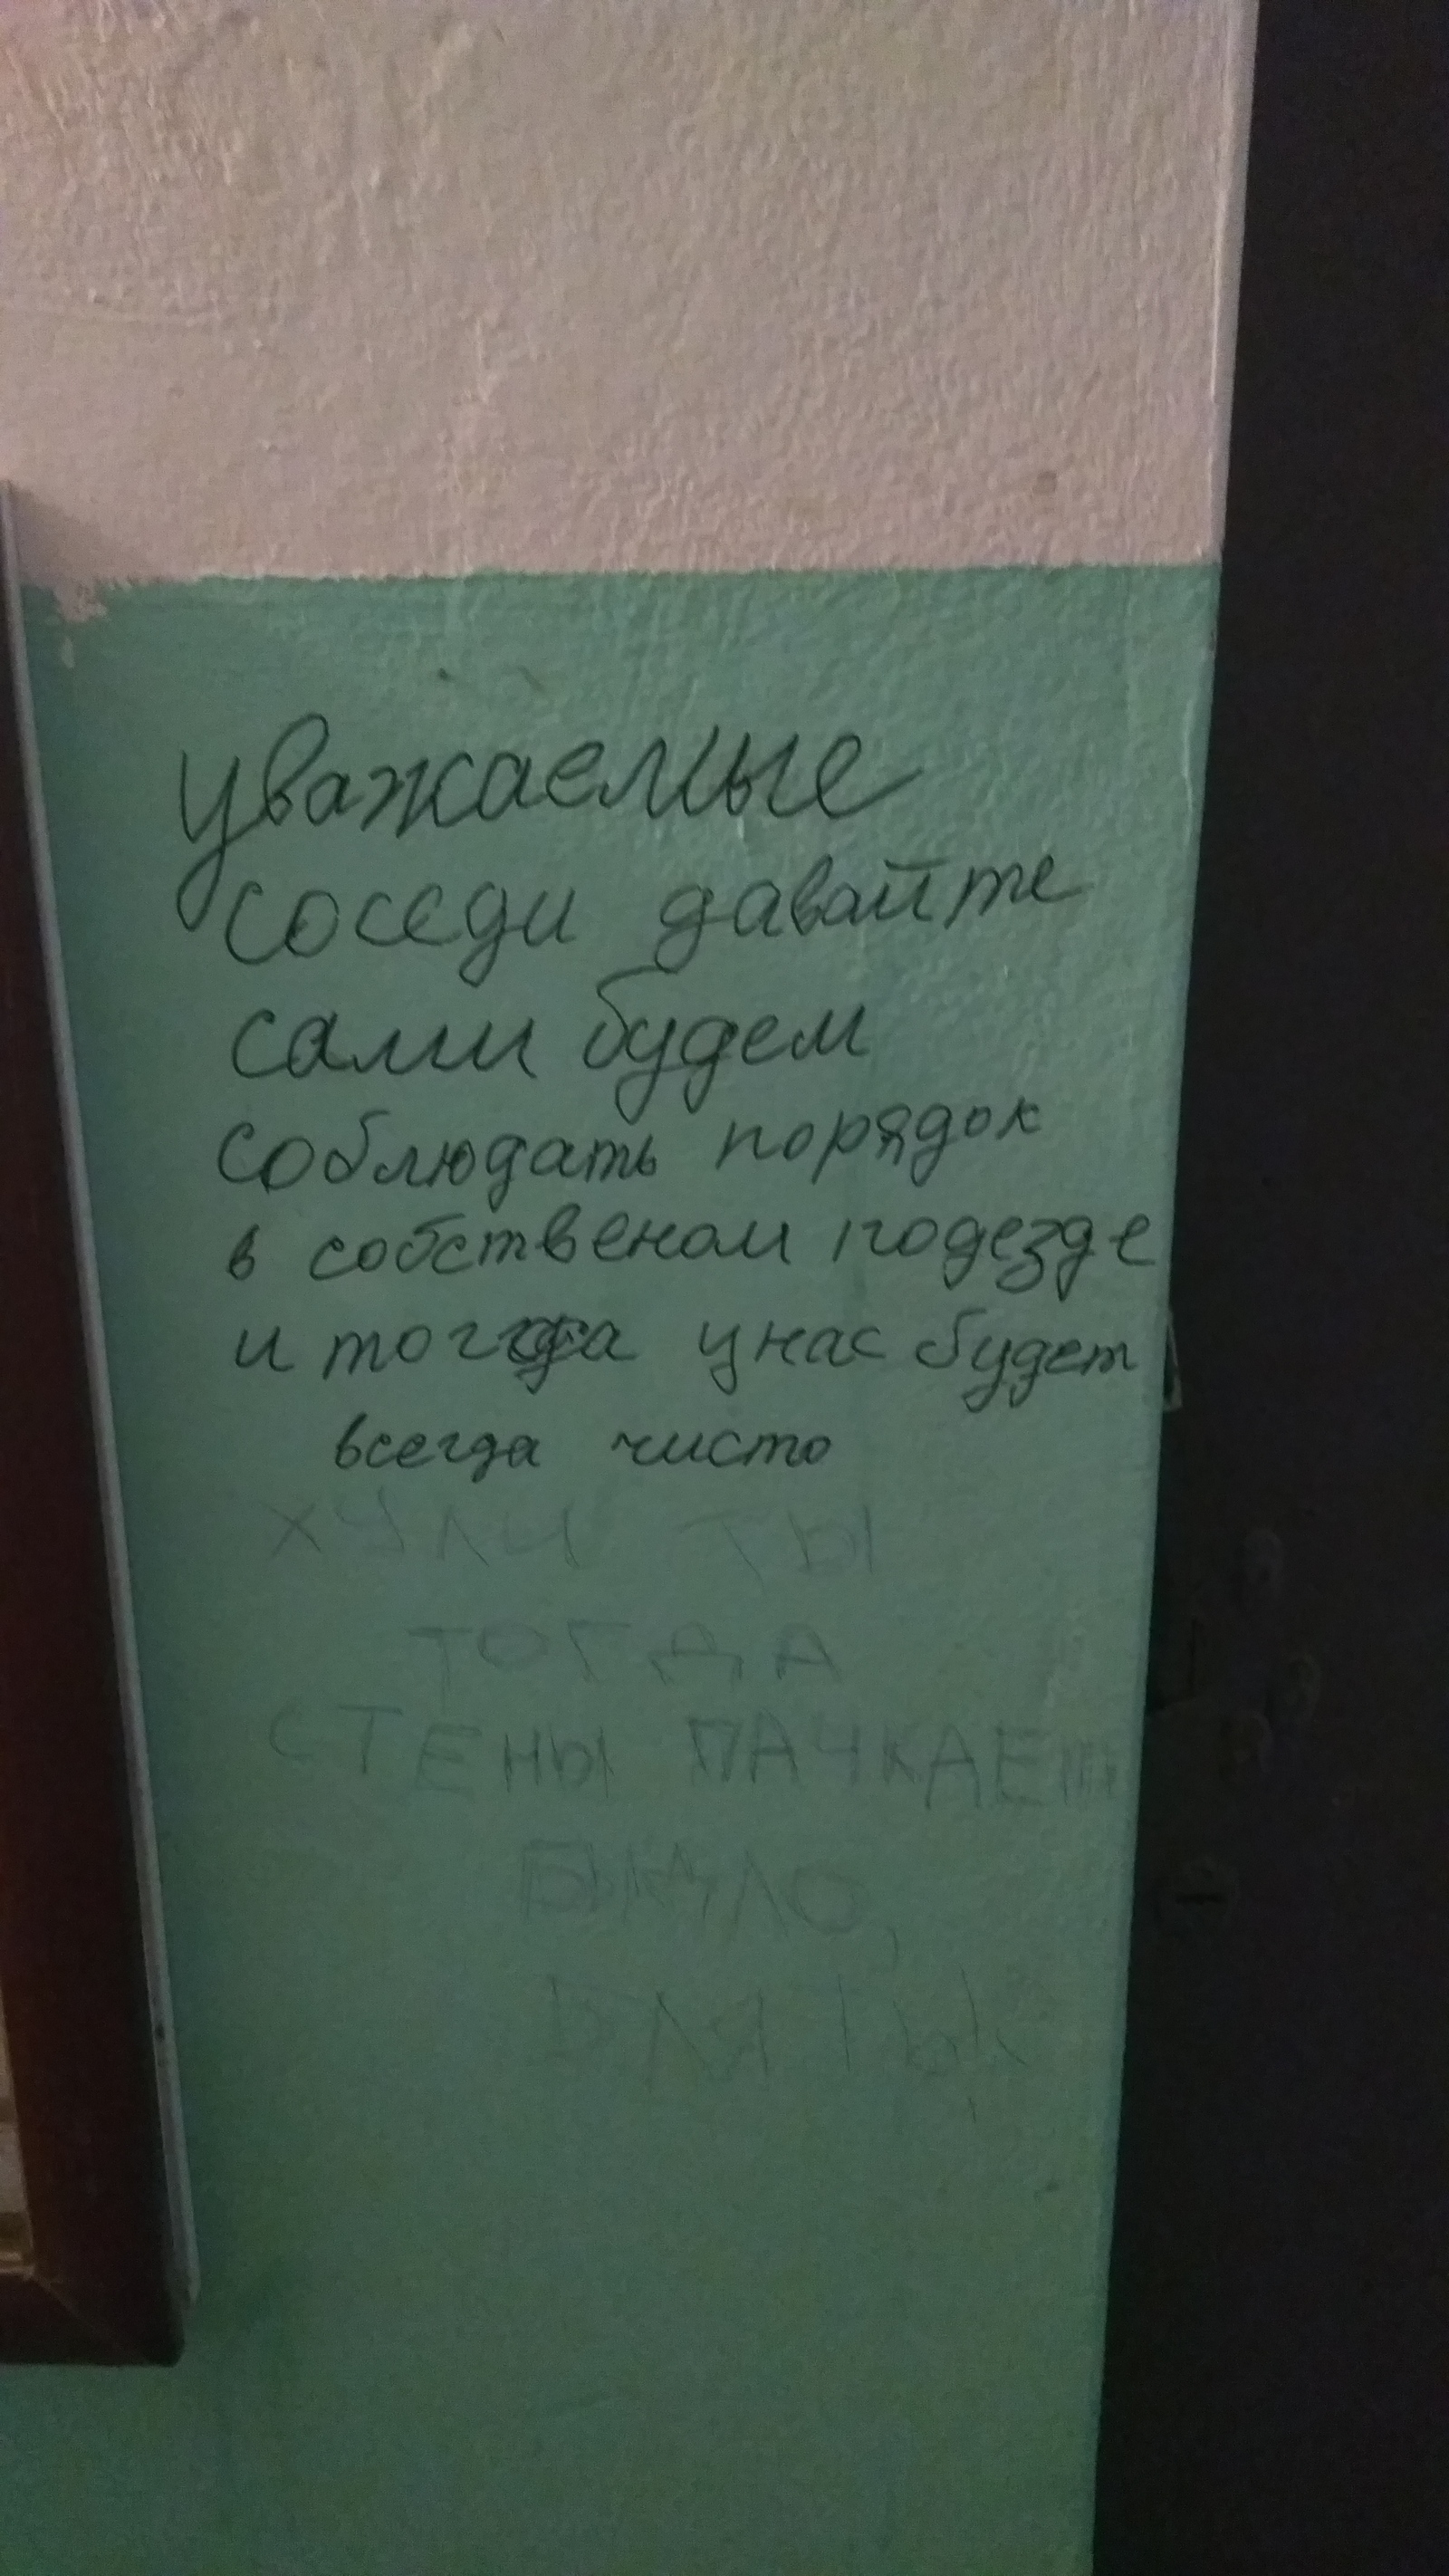 уважаемые
соседи давайте
сами будем
соблюдать порядок
в собственом подезде
и тогда у нас будет
всегда чисто
ХУЛИ ТЫ
ТОГДА
СТЕНЫ ПАЧКАЕШ
БЫДЛО,
БЛЯТЬ